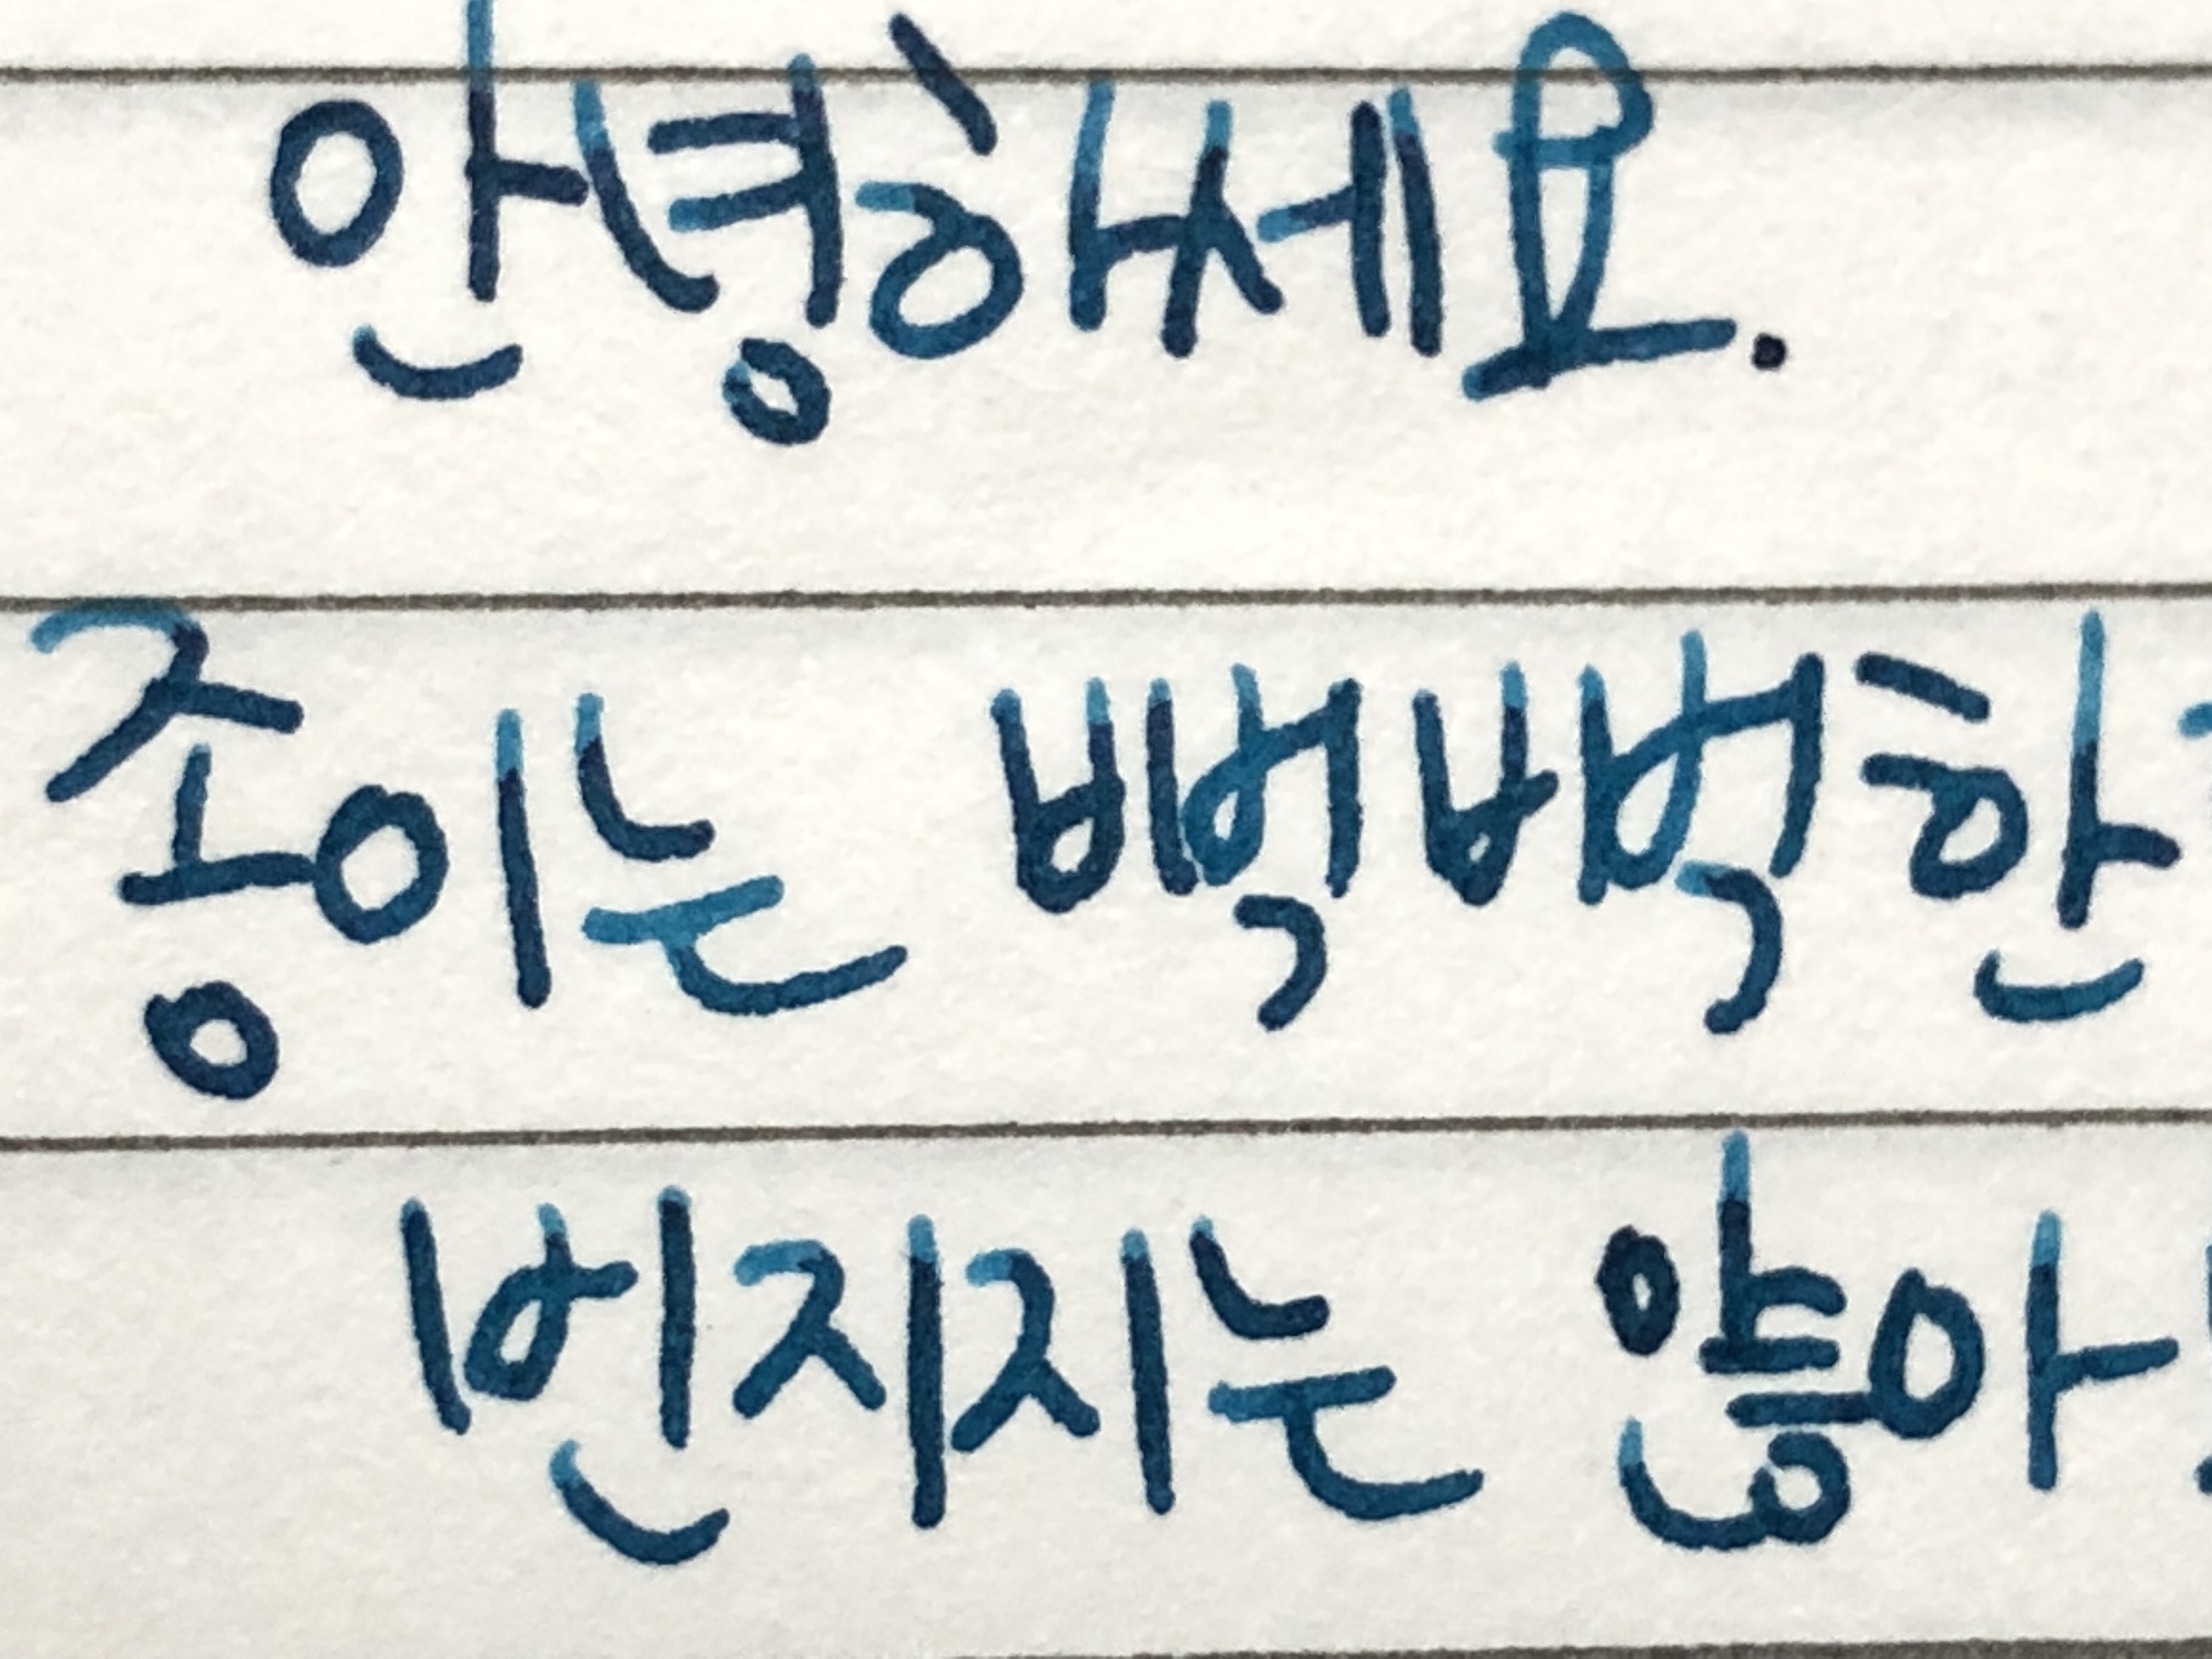 안녕하세요.
종이는 빽빽한
번지지는 않아